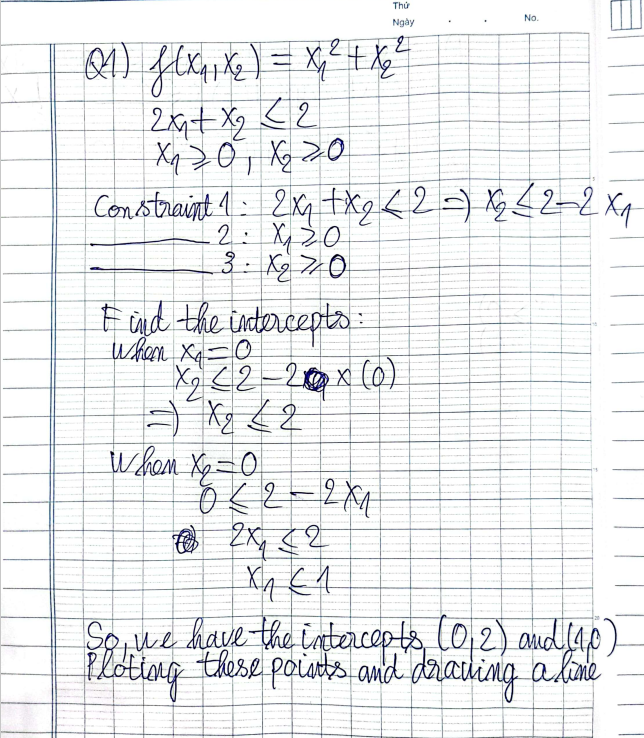 Thứ
Ngày . . No.
Q1) f(x₁,x₂) = x₁² + x₂²
2x₁ + x₂ ≤ 2
x₁ ≥ 0, x₂ ≥ 0
Constraint 1: 2x₁ + x₂ ≤ 2 => x₂ ≤ 2 - 2x₁
________ 2: x₁ ≥ 0
________ 3: x₂ ≥ 0
Find the intercepts:
When x₁ = 0
x₂ ≤ 2 - 2 x (0)
=> x₂ ≤ 2
When x₂ = 0
0 ≤ 2 - 2x₁
2x₁ ≤ 2
x₁ ≤ 1
So, we have the intercepts (0,2) and (1,0)
Ploting these points and drawing a line